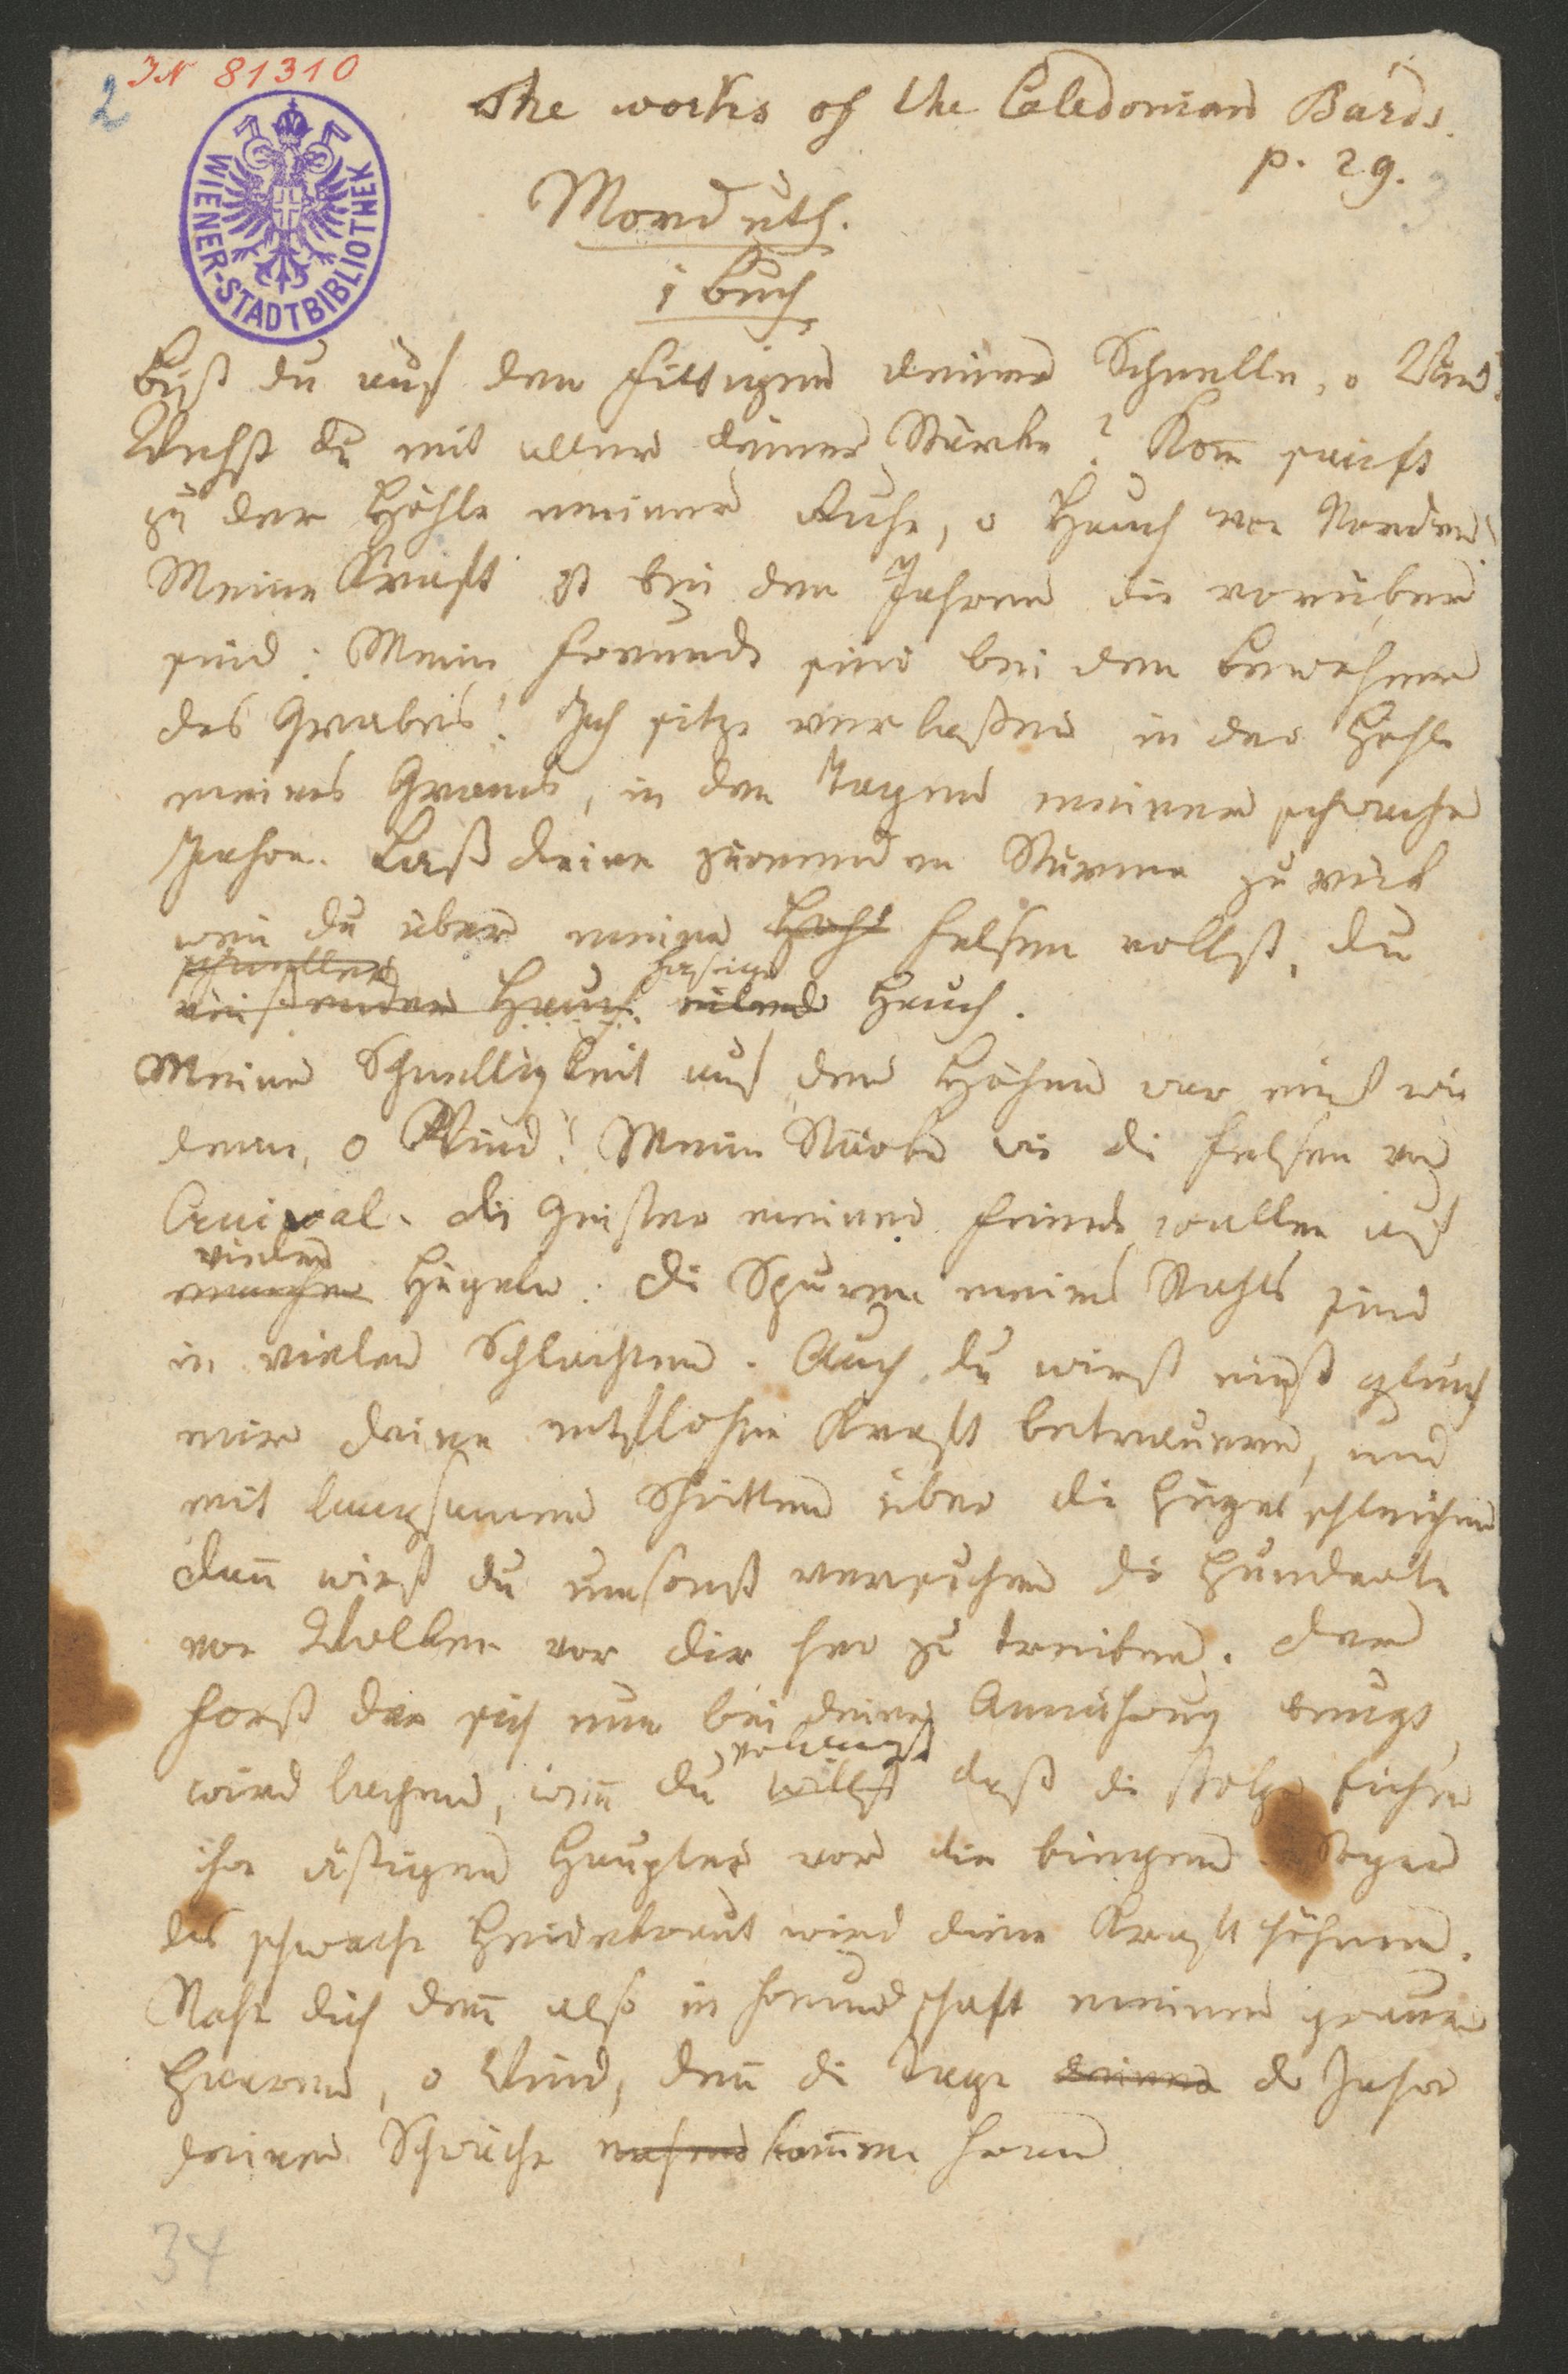 2
IN 81310
WIENER-STADTBIBLIOTHEK
The works of the Caledonian Bards.
p. 29.
Morduth.
1 Buch
Bist du auf den Fittigen deiner Schnelle, o Wind?
Wehst du mit aller deiner Stärke? Kom̄ sanft
zu der Höhle meiner Ruhe, o Hauch von Norden!
Meine Kraft ist bei den Jahren die vorüber
sind: Meine Freunde sind bei den Bewohnern
des Grabes! Ich sitze verlaßen in der Höhle
meines Grams, in den Tagen meiner schwachen
Jahre. Laß deine zürnenden Stürme zurück
wen̄ du über meine Felsen rollst, du
schneller
reissender Hauch. eilender Hauch.
Meine Schnelligkeit auf den Höhen war einst wie
deine, o Wind! Meine Stärke wie die Felsen von
Die Geister meiner Feinde wallen auf
vielen
manchen Hügeln: Die Spuren meines Stahls sind
in vielen Schlachten. Auch du wirst einst gleich
mir deine entflohne Kraft betrauern, und
mit langsamen Schritten über die Hügel schleichen
dan̄ wirst du umsonst versuchen die Hunderte
von Wolken vor dir her zu treiben. Der
Forst der sich nun bei deiner Annährung beugt
wird lachen, wen̄ du
verlangst
willst daß die stolze Fichte
ihre ästigen Häupter vor dir biegen. Sogar
das schwache Heidekraut wird deine Kraft höhnen.
Nahe dich den̄ also in Freundschaft meinen grauen
Haaren, o Wind, den̄ die Tage deiner der Jahre
deiner Schwäche nahen kom̄en heran
34